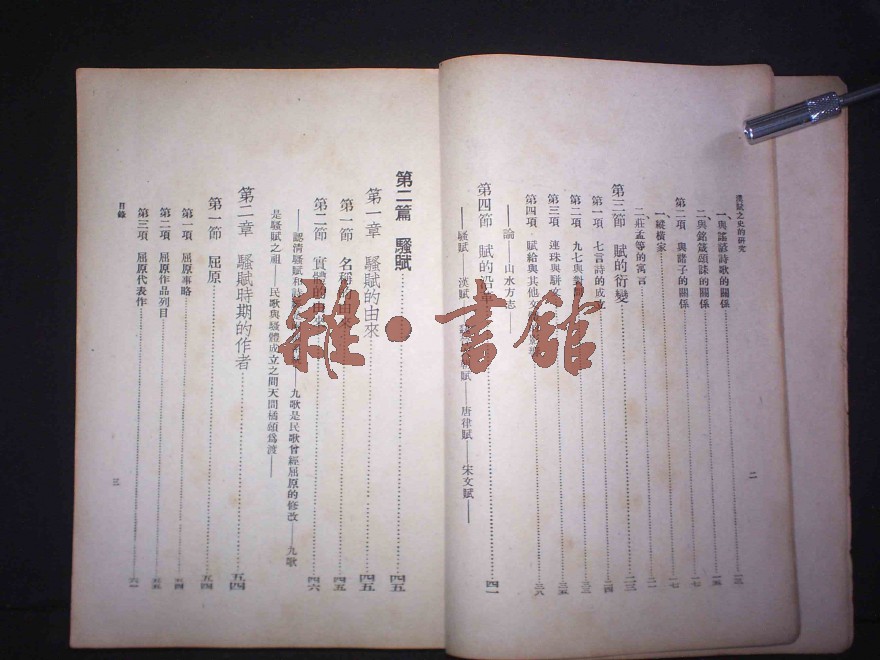 漢賦之史的研究
一、與謠諺詩歌的關係 一三
二、與銘箴頌誄的關係 一五
第二項 與諸子的關係 一七
一、縱橫家 一七
二、莊孟等的寓言 二一
第三節 賦的衍變 二三
第一項 七言詩的成立 二四
第二項 九七與對 三三
第三項 連珠與駢文 三五
第四項 賦給與其他 三八
——論——山水方志——
第四節 賦的沿革 四一
——騷賦——漢賦—— 賦——唐律賦——宋文賦——
二
第二篇 騷賦 四五
第一章 騷賦的由來 四五
第一節 名稱的由來 四五
第二節 實體的由來 四六
——認清騷賦和 ——九歌是民歌曾經屈原的修改——九歌
是騷賦之祖——民歌與騷體成立之間天問橘頌爲渡——
第二章 騷賦時期的作者 五四
第一節 屈原 五四
第一項 屈原事略 五四
第二項 屈原作品列目 五五
第三項 屈原代表作 六一
目錄
三
雜·書館